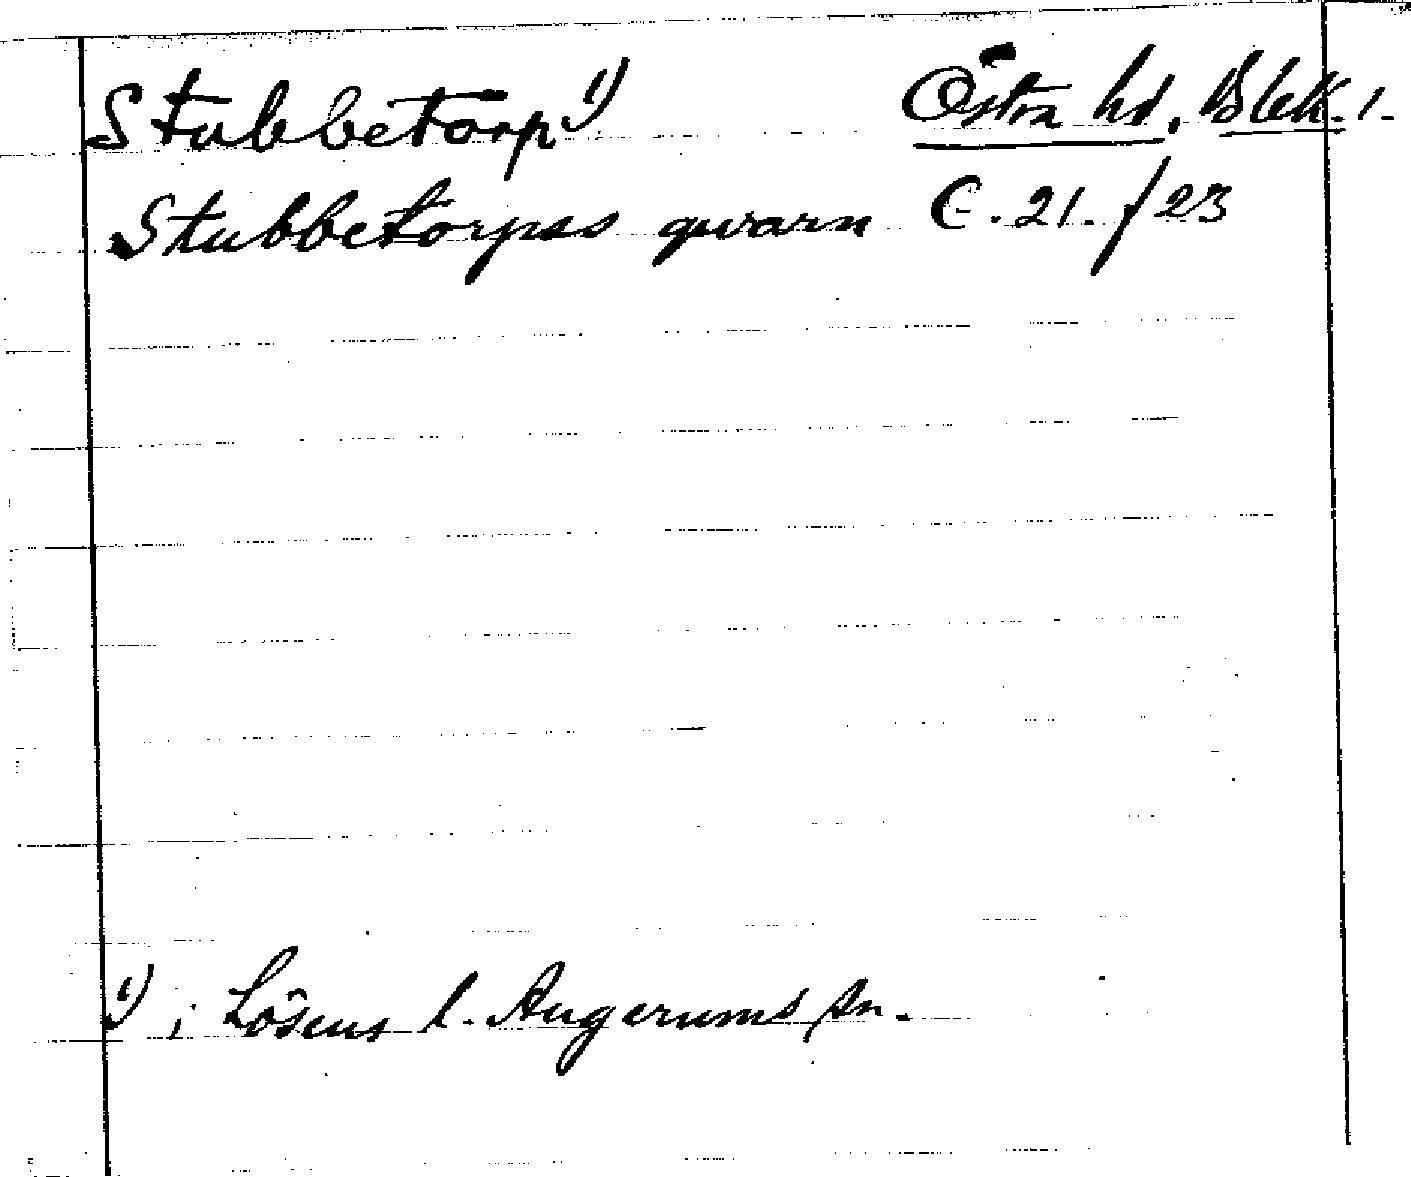 Stubbetorp¹) Östra hd, Blek. l.
Stubbetorps qwarn C. 21. / 23
¹) i Lösens l. Augerums sn.